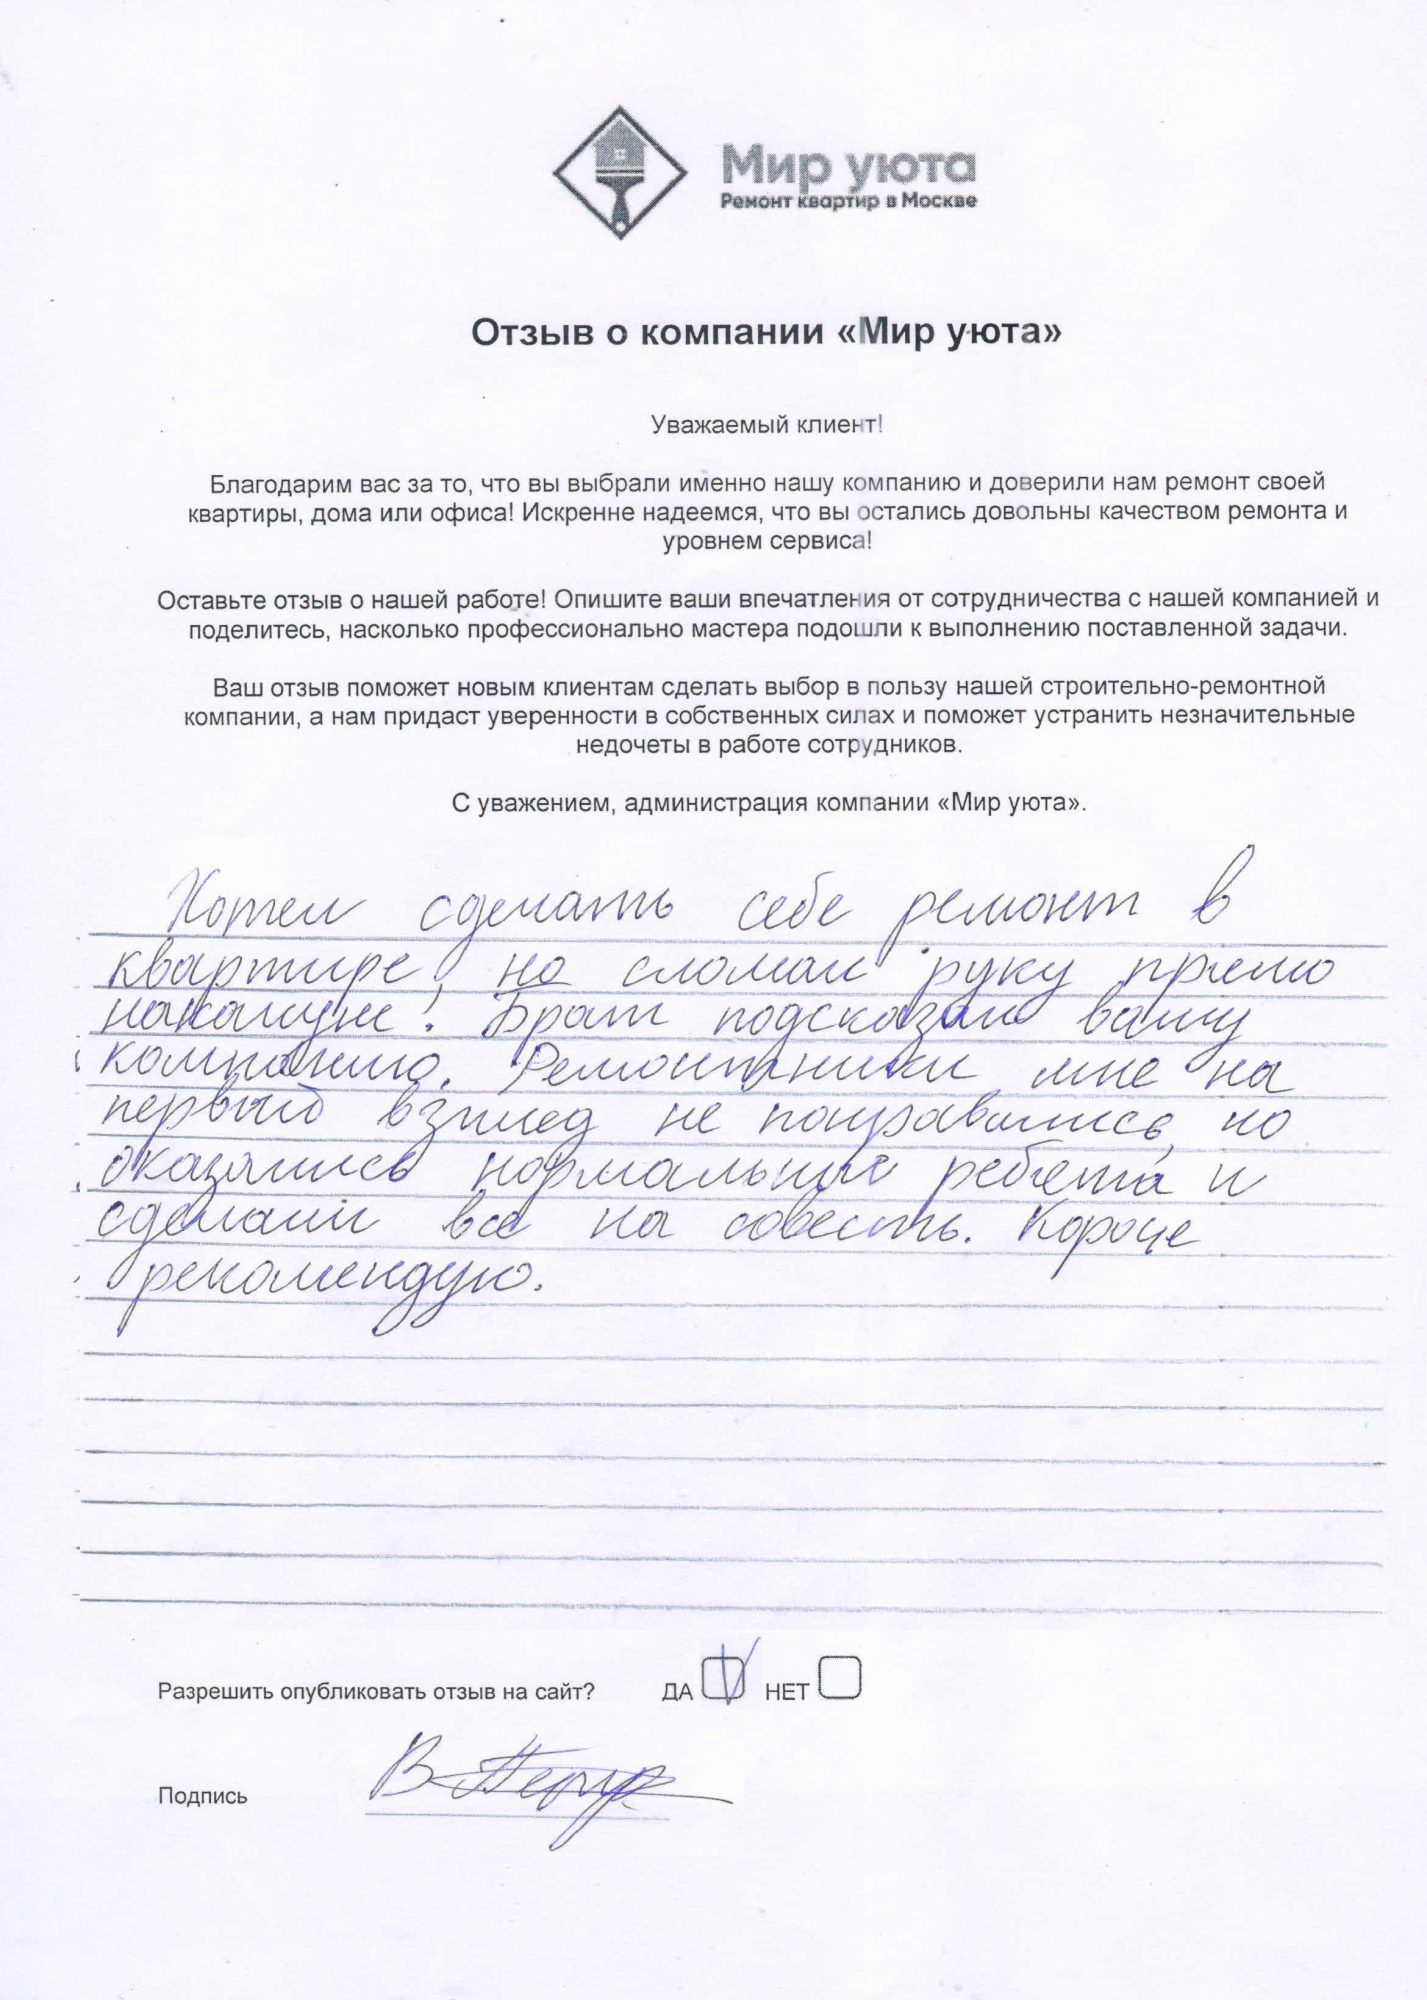 Мир уюта
Ремонт квартир в Москве
Отзыв о компании «Мир уюта»
Уважаемый клиент!
Благодарим вас за то, что вы выбрали именно нашу компанию и доверили нам ремонт своей
квартиры, дома или офиса! Искренне надеемся, что вы остались довольны качеством ремонта и
уровнем сервиса!
Оставьте отзыв о нашей работе! Опишите ваши впечатления от сотрудничества с нашей компанией и
поделитесь, насколько профессионально мастера подошли к выполнению поставленной задачи.
Ваш отзыв поможет новым клиентам сделать выбор в пользу нашей строительно-ремонтной
компании, а нам придаст уверенности в собственных силах и поможет устранить незначительные
недочеты в работе сотрудников.
С уважением, администрация компании «Мир уюта».
Хотел сделать себе ремонт в
квартире, но сломал руку прямо
накануне! Брат подсказал вашу
компанию. Ремонтники мне на
первый взгляд не понравились, но
оказались нормальные ребята и
сделали все на совесть. Короче
рекомендую.
Разрешить опубликовать отзыв на сайт? ДА НЕТ
Подпись